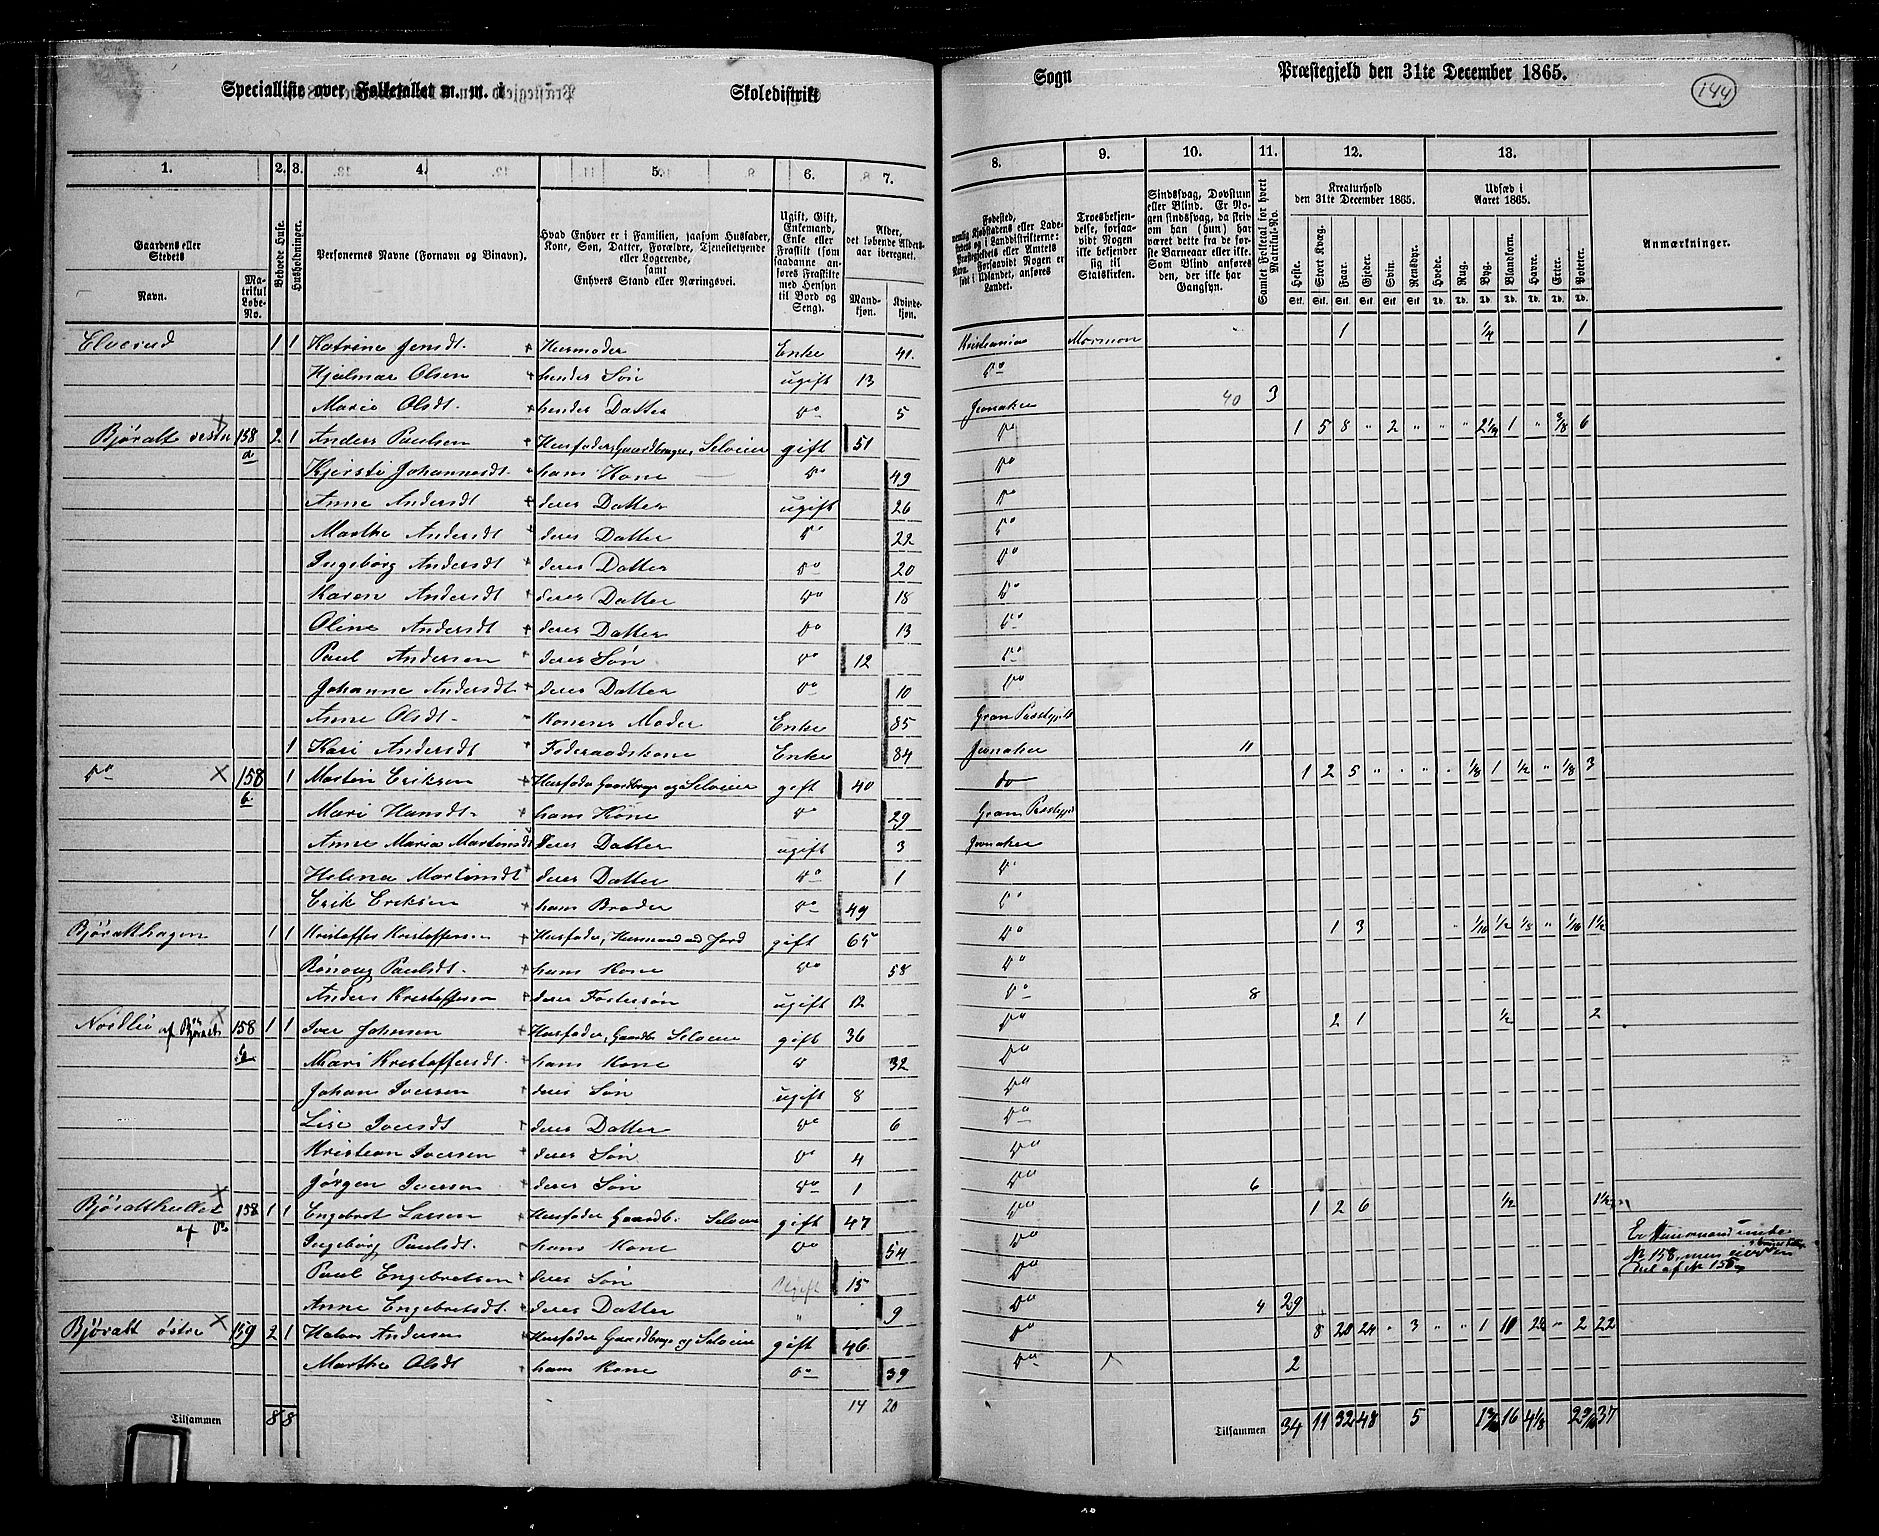 Specialliste over Folketallet m. m. i Skoledistrikt
Sogn Præstegjeld den 31te December 1865.
144
1. 2. 3. 4. 5. 6. 7.
8. 9. 10. 11. 12. 13.
Gaardens eller Stedets
Navn.
Matrikul Løbe-No.
Beboede Huse.
Husholdninger.
Personernes Navne (Fornavn og Binavn).
Hvad Enhver er i Familien, saasom Husfader, Kone, Søn, Datter, Forældre, Tjenestetyende eller Logerende, samt Enhvers Stand eller Næringsvei.
Ugift, Gift, Enkemand, Enke eller Fraskilt (som saadanne anføres Fraskilte med Hensyn til Bord og Seng).
Alder, det løbende Aldersaar iberegnet.
Mandkjøn. Kvindekjøn.
Fødested, nemlig Kjøbstadens eller Ladestedets og i Landdistrikterne: Præstegjeldets eller Amtets Navn. Forsaavidt Nogen er født i Udlandet, anføres Landet.
Troesbekjendelse, forsaavidt Nogen ikke bekjender sig til Statskirken.
Sindssvag, Døvstum eller Blind. Er Nogen sindssvag, da skrives om han (hun) har været dette fra de første Barneaar eller ikke. Som Blind anføres den, der ikke har Gangsyn.
Samlet Folketal for hvert Matrikul-No.
Kreaturhold den 31te December 1865.
Udsæd i Aaret 1865.
Heste. Stort Kvæg. Faar. Gjeder. Svin. Rensdyr. Hvede. Rug. Byg. Blandkorn. Havre. Erter. Poteter.
Stk. Stk. Stk. Stk. Stk. Stk. Td. Td. Td. Td. Td. Td. Td.
Anmærkninger.
Elverud 1 1 Katrine Jensdt. Husmoder Enke 41 Kristiania Mormon 1 ¼ 1
Hjalmar Olsen hendes Søn ugift 13 Do
Marie Olsdt. hendes Datter Do 5 Jevnaker 40 3
Bjøralt vestre 158 a 2 1 Anders Paulsen Husfader, Gaardbruger, Selveier gift 51 Do 1 5 8 " 2 " " " 2¼ 1 " 3/8 6
Kjersti Johannesdt. hans Kone Do 49 Do
Anne Andersdt deres Datter ugift 26 Do
Marthe Andersdt deres Datter Do 22 Do
Ingeborg Andersdt deres Datter Do 20 Do
Karen Andersdt deres Datter Do 18 Do
Oline Andersdt deres Datter Do 13 Do
Paul Andersen deres Søn Do 12 Do
Johanne Andersdt deres Datter Do 10 Do
Anne Olsdt Konens Moder Enke 85 Gran Præstegjeld
1 Kari Andersdt Føderaadskone Enke 84 Jevnaker 11
Do 158 b 1 Martin Eriksen Husfader Gaardbruger og Selveier gift 40 do 1 2 5 " " " " 1/8 1 ½ " 1/8 3
Mari Hansdt. hans Kone Do 29 Gran Præstegjeld
Anne Maria Martinsdt deres Datter ugift 3 Jevnaker
Helena Martinsdt deres Datter Do 1 Do
Erik Eriksen hans Broder Do 49 Do
Bjøralthagen 1 1 Kristoffer Kristoffersen Husfader, Husmand med Jord gift 65 Do 1 3 " 1/16 ½ 1/8 " 1/16 1½
Rønnaug Paulsdt. hans Kone Do 58 Do
Anders Kristoffersen deres Fostersøn ugift 12 Do 8
Nordlie af Bjøralt 158 1 1 Iver Johnsen Husfader, Gaardbr Selveier gift 36 Do 2 1 ½ 2
Mari Kristoffersdt. hans Kone Do 32 Do
Johan Iversen deres Søn ugift 8 Do
Lise Iversdt deres Datter Do 6 Do
Kristian Iversen deres Søn Do 4 Do
Jørgen Iversen deres Søn Do 1 Do 6
Bjøralthullet af Do 158 1 1 Engebret Larsen Husfader Gaardb. Selveier gift 47 Do 1 2 6 ½ 1½
Ingeborg Paulsdt. hans Kone Do 54 Do
Er Huusmand under
No 158, men eier en
Del af No 158
Paul Engebretsen deres Søn Ugift 15 Do
Anne Engebretsdt. deres Datter " 9 Do 4 29
Bjøralt østre 159 2 1 Halvor Andersen Husfader Gaardbruger og Selveier gift 46 Do 8 20 24 " 3 " " 1 10 " 2 22
Marthe Olsdt hans Kone Do 39 Do 2
Tilsammen 8 8 14 20
Tilsammen 34 11 32 48 5 16 4 1/8 37